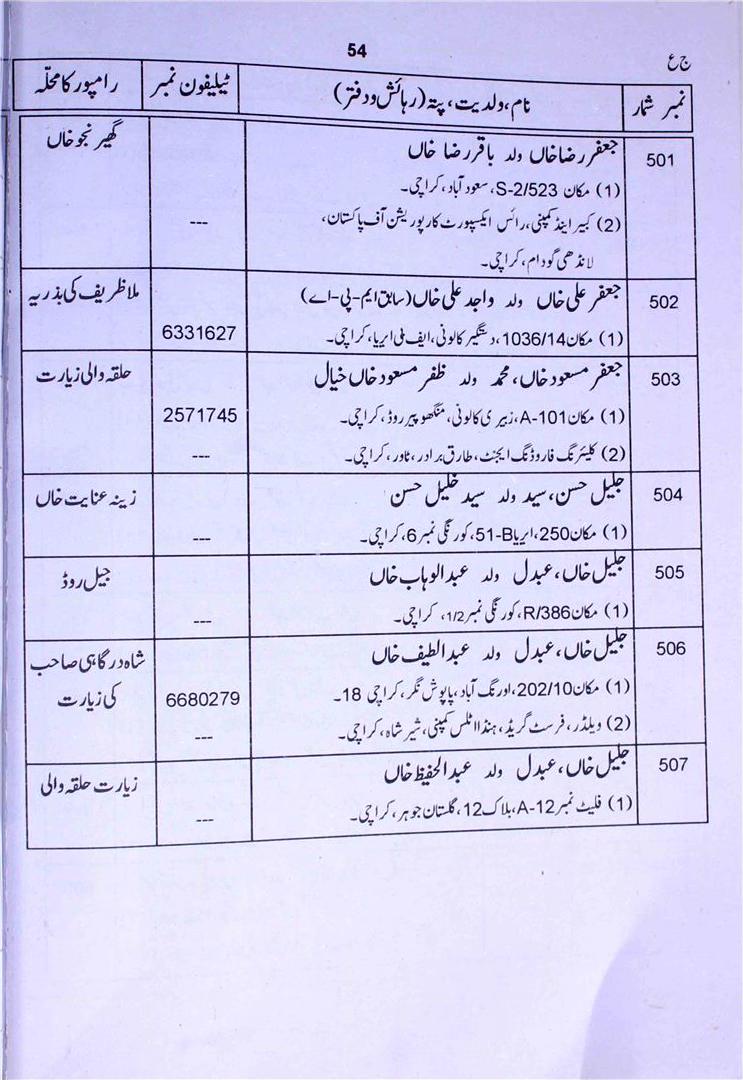 54
ج ع
نمبر شمار	نام، ولدیت، پتہ (رہائش و دفتر)	ٹیلیفون نمبر	رامپور کا محلّہ
501	جعفر رضا خاں ولد باقر رضا خاں	گھیر نجو خاں
(1) مکان S-2/523، سعود آباد، کراچی۔
(2) کبیر اینڈ کمپنی، رائس ایکسپورٹ کارپوریشن آف پاکستان،	---
لانڈھی گودام، کراچی۔
502	جعفر علی خاں ولد واجد علی خاں (سابق ایم-پی-اے)	ملا ظریف کی بذریہ
(1) مکان 1036/14، دستگیر کالونی، ایف بی ایریا، کراچی۔	6331627
503	جعفر مسعود خاں، محمد ولد ظفر مسعود خاں خیال	حلقہ والی زیارت
(1) مکان A-101، زبیری کالونی، منگھو پیر روڈ، کراچی۔	2571745
(2) کلیئرنگ فارورڈنگ ایجنٹ، طارق برادر، ٹاور، کراچی۔	---
504	جلیل حسن، سید ولد سید خلیل حسن	زینہ عنایت خاں
(1) مکان 250، ایریا 51-B، کورنگی نمبر 6، کراچی۔	---
505	جلیل خاں، عبدل ولد عبدالوہاب خاں	جیل روڈ
(1) مکان R/386، کورنگی نمبر 1/2، کراچی۔	---
506	جلیل خاں، عبدل ولد عبدالطیف خاں	شاہ درگاہی صاحب
(1) مکان 202/10، اورنگ آباد، پاپوش نگر، کراچی 18۔	6680279	کی زیارت
(2) ویلڈر، فرسٹ گریڈ، ہنڈا اٹلس کمپنی، شیر شاہ، کراچی۔	---
507	جلیل خاں، عبدل ولد عبدالحفیظ خاں	زیارت حلقہ والی
(1) فلیٹ نمبر A-12، بلاک 12، گلستان جوہر، کراچی۔	---